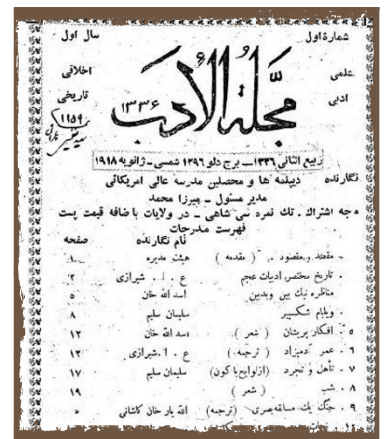 شمارهٔ اول سال اول
علمی اخلاقی
ادبی تاریخی
مجلة الادب
۱۳۳۶
۱۱۵۹
ربیع الثانی ۱۳۳۶ ــ برج دلو ۱۲۹۶ شمسی ــ ژانویه ۱۹۱۸
نگارنده دیپلمه ها و محصلین مدرسه عالی امریکائی
مدیر مسئول ــ میرزا محمد
وجه اشتراک . تك نمره سی شاهی ــ در ولایات با ضافه قیمت پست
فهرست مندرجات
نام نگارنده صفحه
مقصد و مقصود ( مقدمه ) هیئت مدیره ۱
تاریخ مختصر ادبیات عجم ع . ا . شیرازی ۲
مناظره نیك بین وبدبین اسد الله خان ۵
ویلیام شکسپیر سلیمان سلیم ۸
۵ . افکار پریشان ( شعر ) اسد الله خان ۱۲
۶ . عمر آدمیزاد ( ترجمه ) ع . ا . شیرازی ۱۳
۷ . تأهل و تجرد ( از لوایح با کون ) سلیمان سلیم ۱۷
۸ . شب ( شعر ) ۱۹
۹ . جنگ یك مسافه بصری ( ترجمه ) الله یار خان کاشانی